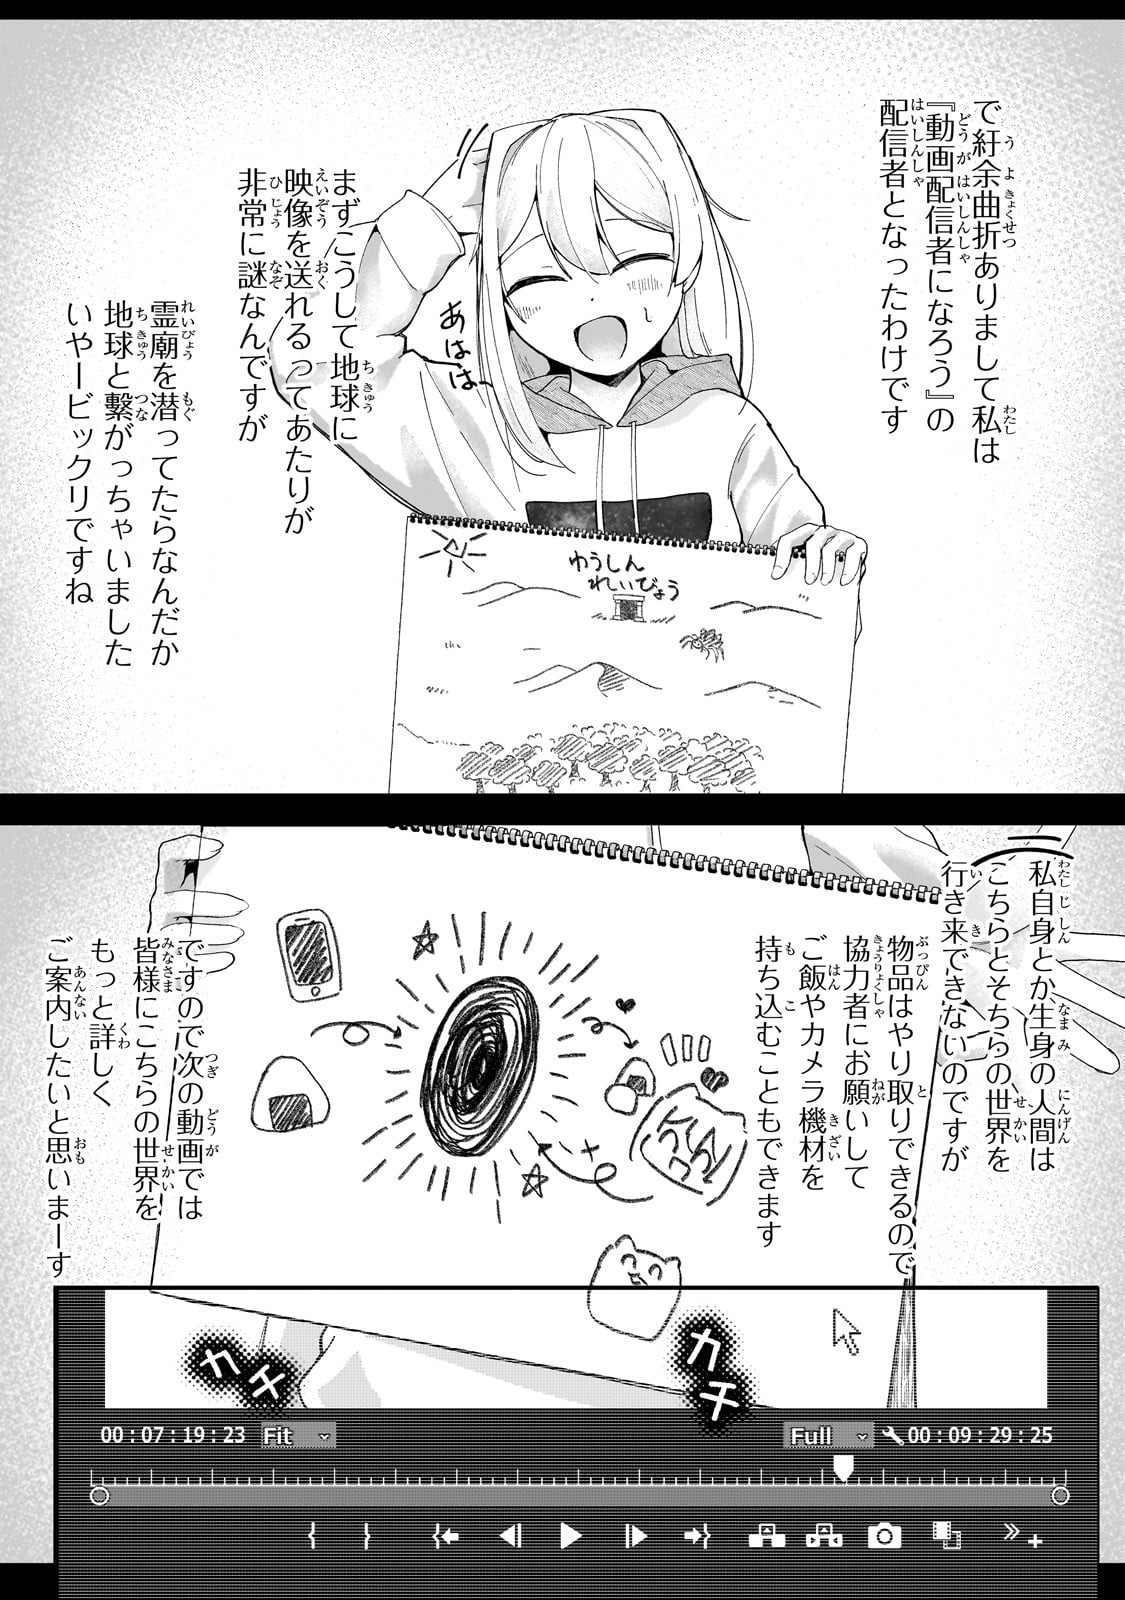 で紆余曲折ありまして私は
『動画配信者になろう』の
配信者となったわけです
まずこうして地球に
映像を送れるってあたりが
非常に謎なんですが
あはは
霊廟を潜ってたらなんだか
地球と繋がっちゃいました
いやービックリですね
ゆうしん
れいびょう
私自身とか生身の人間は
こちらとそちらの世界を
行き来できないのですが
物品はやり取りできるので
協力者にお願いして
ご飯やカメラ機材を
持ち込むこともできます
ですので次の動画では
皆様にこちらの世界を
もっと詳しく
ご案内したいと思いまーす
カチ
カチ
00:07:19:23 Fit Full 00:09:29:25